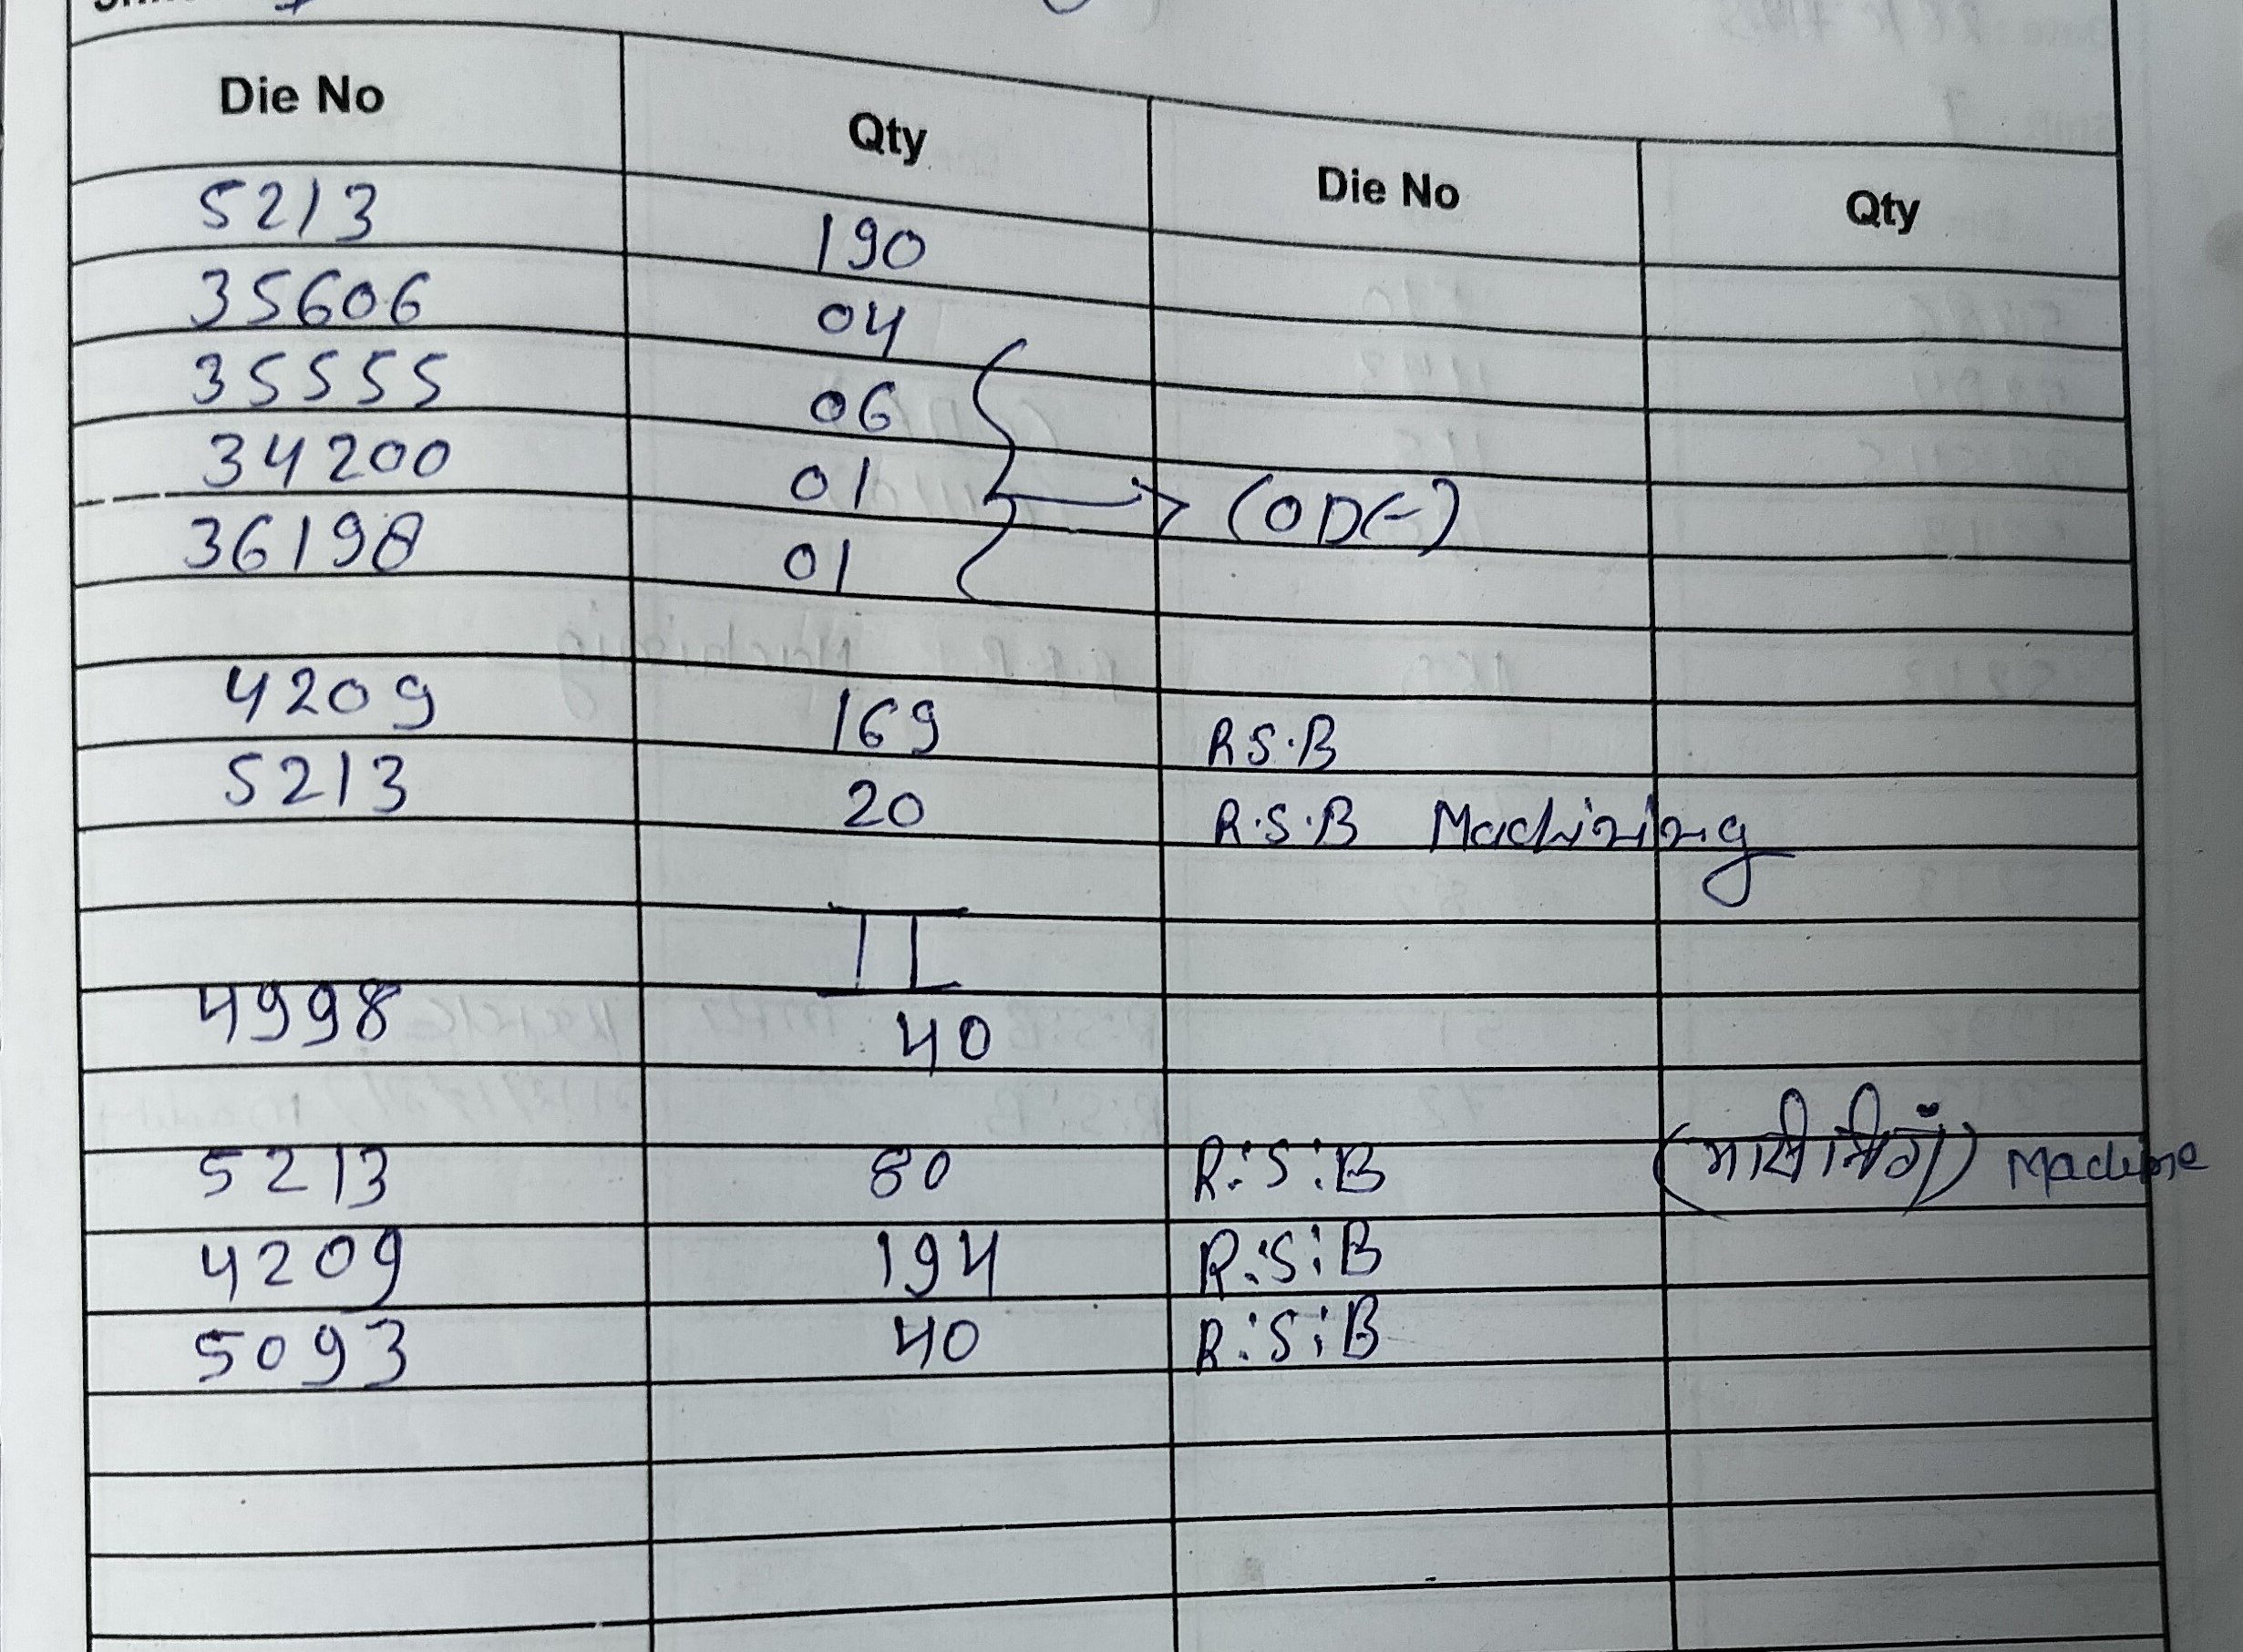 Die No Qty Die No Qty
5213 190
35606 04
35555 06
34200 01 (ODC-)
36198 01
4209 169 R S.B
5213 20 R.S.B Machining
II
4998 40
5213 80 R:S:B Machine
4209 194 R:S:B
5093 40 R:S:B